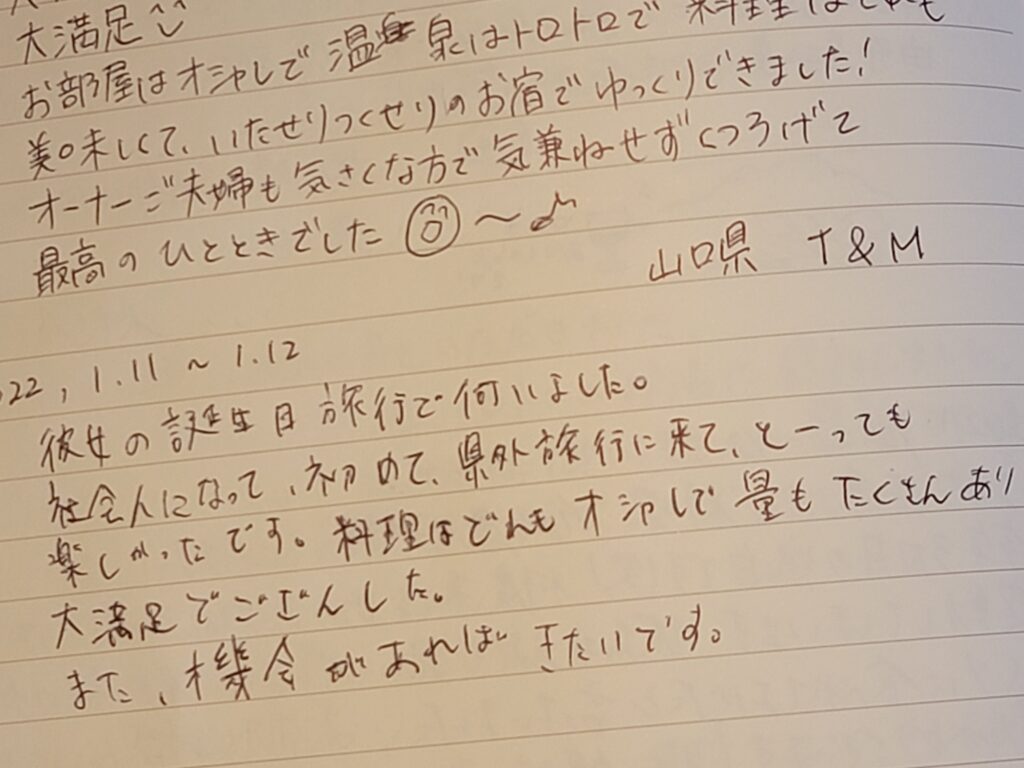 大満足
お部屋はオシャレで 温泉はトロトロで 料理はとても
美味しくて、いたせりつくせりのお宿で ゆっくりできました!
オーナーご夫婦も 気さくな方で 気兼ねせず くつろげて
最高の ひとときでした 〜♪
山口県 T & M
22, 1.11 ~ 1.12
彼女の誕生日 旅行で 伺いました。
社会人になって、初めて、県外旅行に来て、とーっても
楽しかったです。料理はどれも オシャレで 量も たくさんあり
大満足でござんした。
また、機会があれば きたいです。